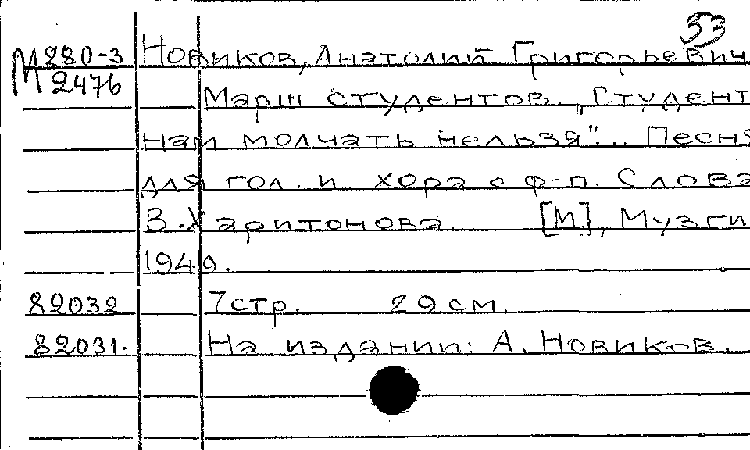 53
М 280-3 Новиков, Анатолий Григорьевич
2476 Марш студентов. "Студент
нам молчать нельзя".. Песня
для гол. и хора с ф-п. Слова
В. Харитонова. [М], Музги
1949.
82032 7 стр. 29 см.
82031. На издании: А. Новиков.